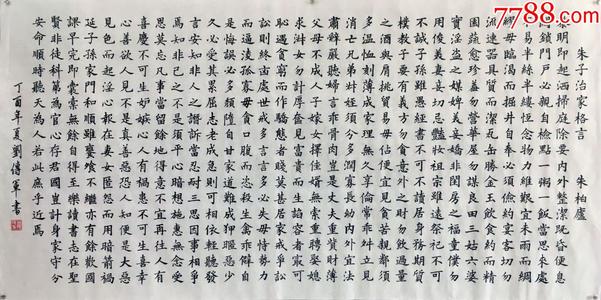 7788.com
朱子治家格言 朱柏廬
黎明即起洒掃庭除要内外整潔既昏便息
関鎖門戶必親自檢點一粥一飯當思來處
不易半絲半縷恒念物力維艱宜未雨而綢
繆毋臨渴而掘井自奉必須儉約宴客切勿
流連器具質而潔瓦缶勝金玉飲食約而精
園蔬愈珍饈勿營華屋勿謀良田三姑六婆
實淫盗之媒婢美妾嬌非閨房之福童僕勿
用俊美妻妾切忌艷妝祖宗雖遠祭祀不可
不誠子孫雖愚經書不可不讀居身務期質
樸教子要有義方勿貪意外之財勿飲過量
之酒與肩挑貿易毋佔便宜見貧苦親鄰須
多溫恤刻薄成家理無久享倫常乖舛立見
消亡兄弟叔姪須分多潤寡長幼内外宜法
肅辭嚴聽婦言乖骨肉豈是丈夫重資財薄
父母不成人子嫁女擇佳婿無索重聘娶媳
求淑女勿計厚奩見富貴而生諂容者最可
恥遇貧窮而作驕態者賤莫甚居家戒爭訟
訟則終凶處世戒多言言多必失毋恃勢力
而逼凌孤寡毋貪口腹而恣殺生禽乖僻自
是悔誤必多頹隳自甘家道難成狎暱惡少
久必受其累屈志老成急則可相依輕聽發
言安知非人之譖訴當忍耐三思因事相爭
焉知非己之不是須平心暗想施惠無念受
恩莫忘凡事當留餘地得意不宜再往人有
喜慶不可生妒嫉心人有禍患不可生喜幸
心善欲人見不是真善惡恐人知便是大惡
見色而起淫心報在妻女匿怨而用暗箭禍
延子孫家門和順雖饔飧不繼亦有餘歡國
課早完即囊橐無餘自得至樂讀書志在聖
賢非徒科第為官心存君國豈計身家守分
安命順時聽天為人若此庶乎近焉
丁酉年夏劉傳軍書